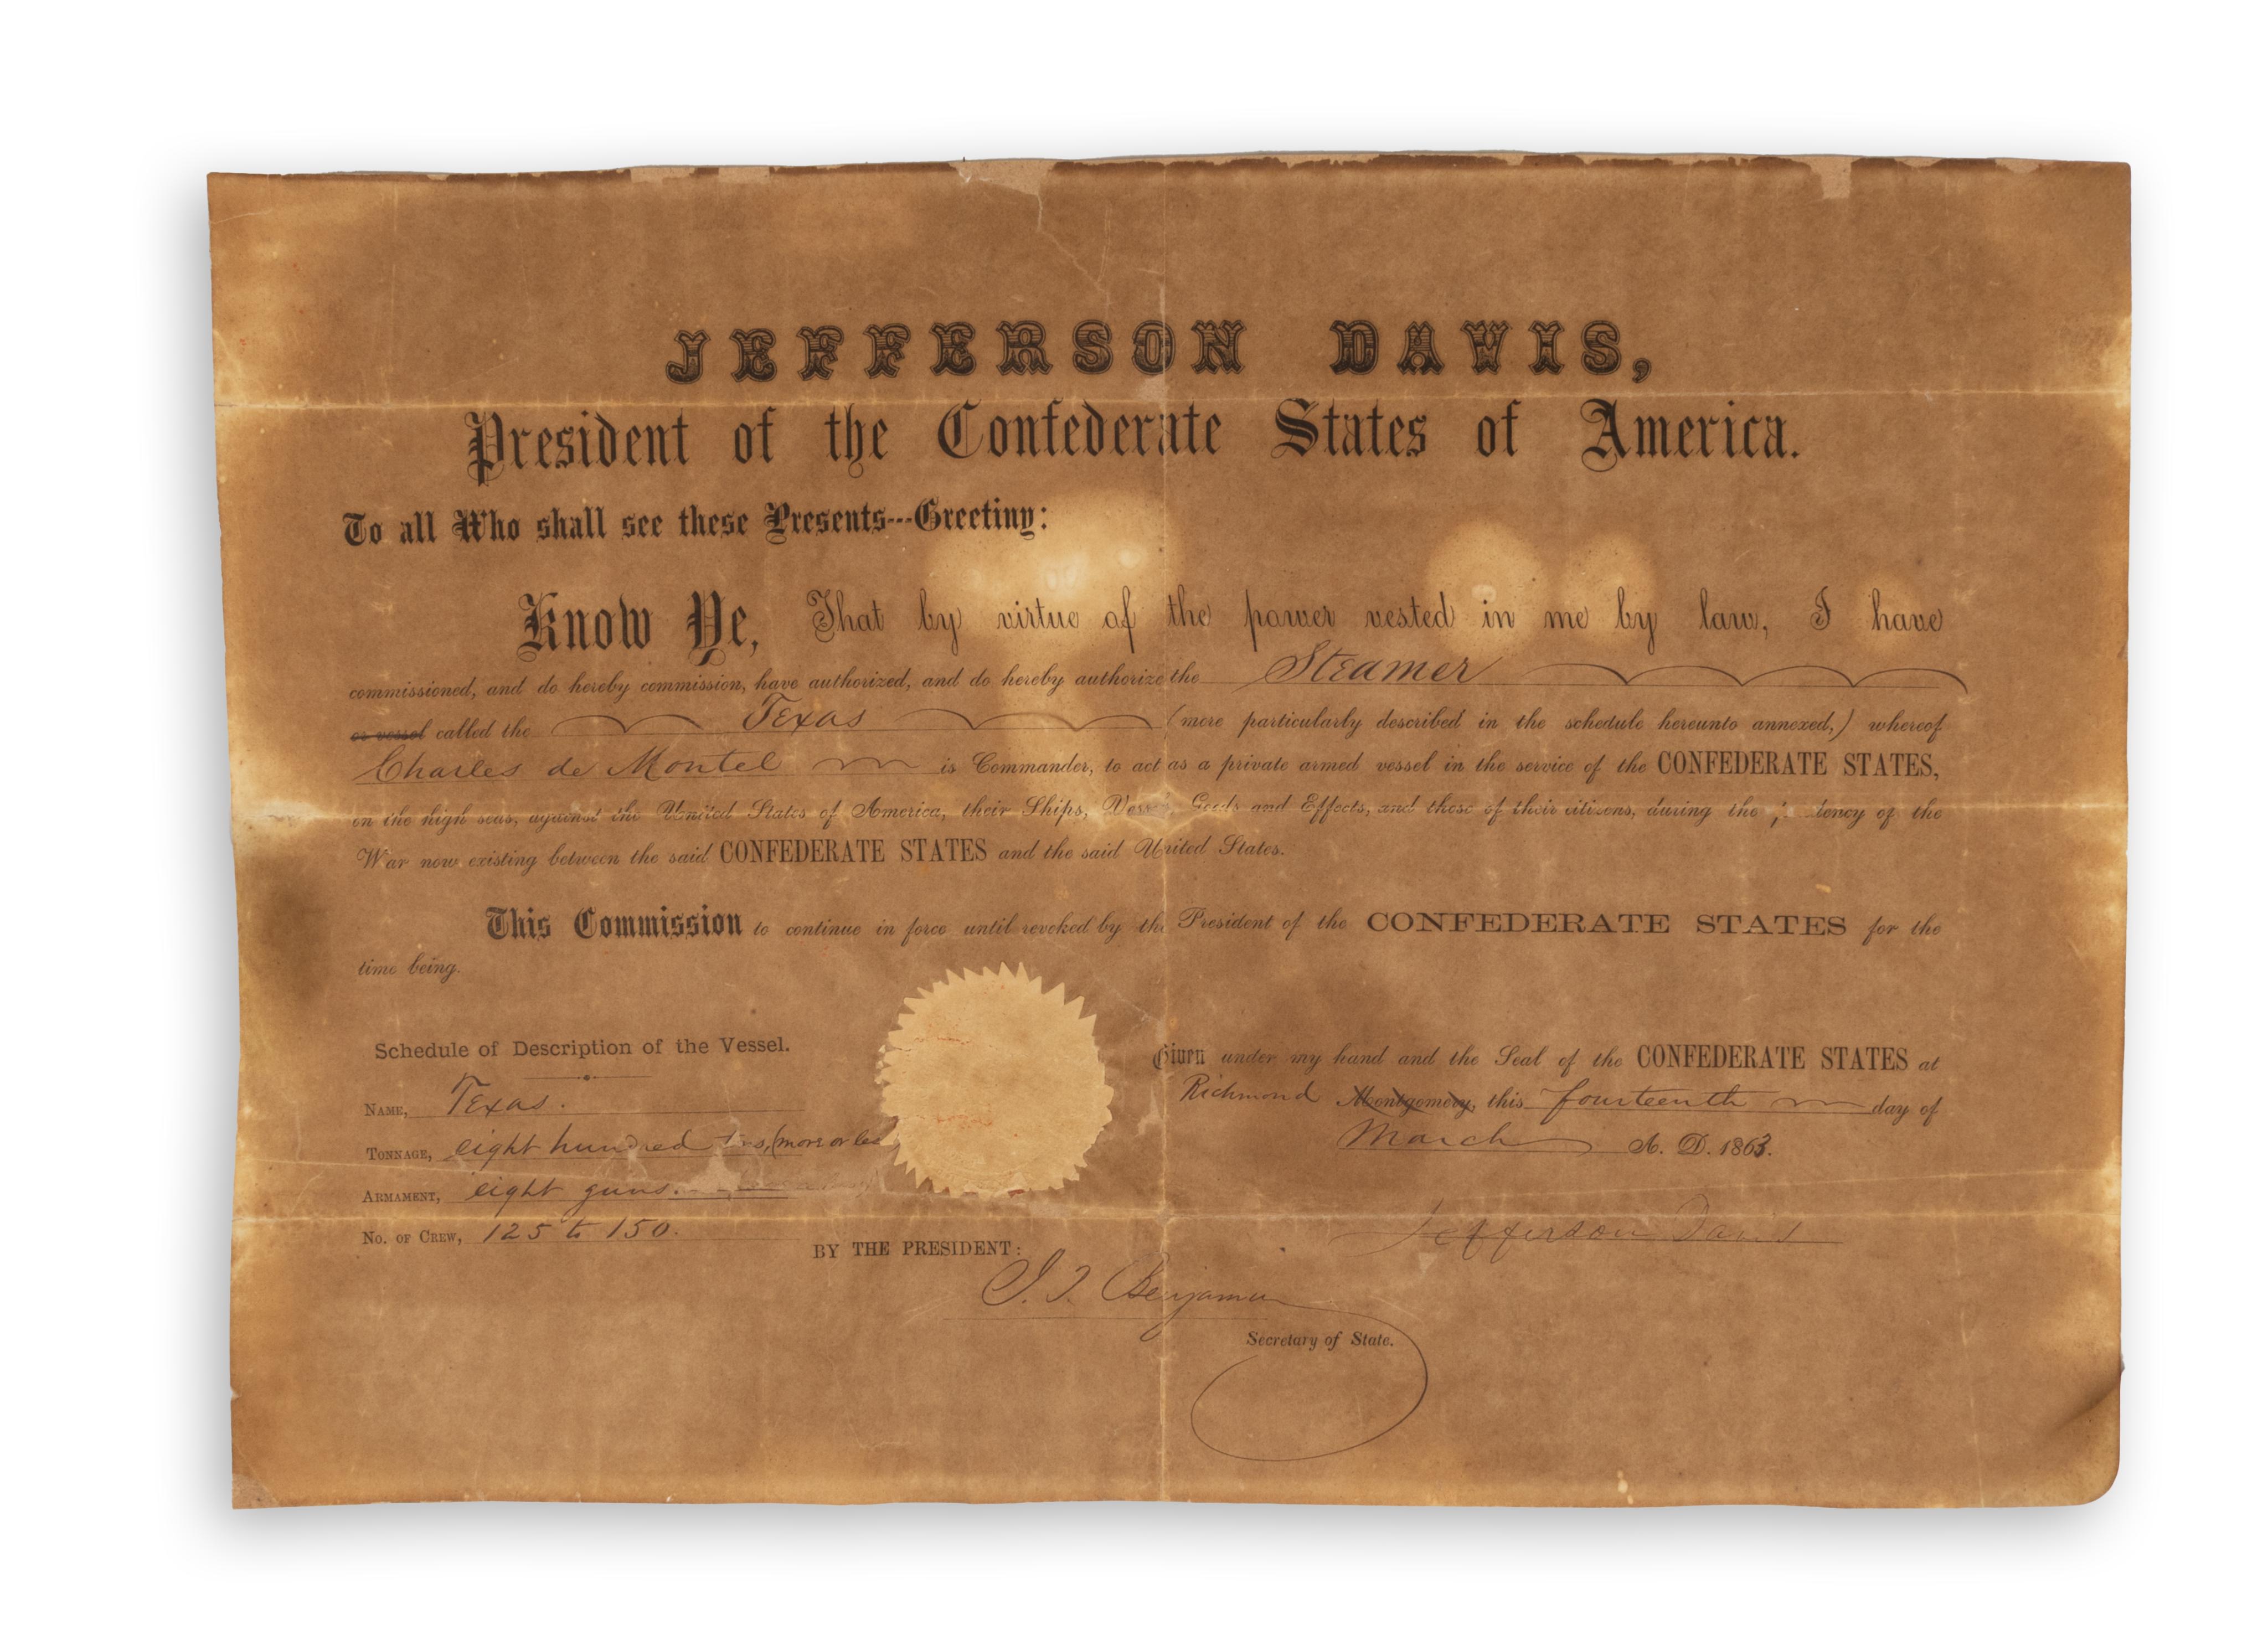 JEFFERSON DAVIS,
President of the Confederate States of America.
To all Who shall see these Presents---Greeting:
Know Ye, That by virtue of the power vested in me by law, I have
commissioned, and do hereby commission, have authorized, and do hereby authorize the Steamer
or vessel called the Texas (more particularly described in the schedule hereunto annexed,) whereof
Charles de Montel is Commander, to act as a private armed vessel in the service of the CONFEDERATE STATES,
on the high seas, against the United States of America, their Ships, Goods and Effects, and those of their citizens, during the of the
War now existing between the said CONFEDERATE STATES and the said United States.
This Commission to continue in force until revoked by the President of the CONFEDERATE STATES for the
time being.
Schedule of Description of the Vessel.
NAME, Texas.
TONNAGE, eight hundred (more or less
ARMAMENT, eight guns.
No. OF CREW, 125 to 150.
Given under my hand and the Seal of the CONFEDERATE STATES at
Richmond Montgomery, this fourteenth day of
March A. D. 1863.
Jefferson Davis
BY THE PRESIDENT:
J. P. Benjamin
Secretary of State.